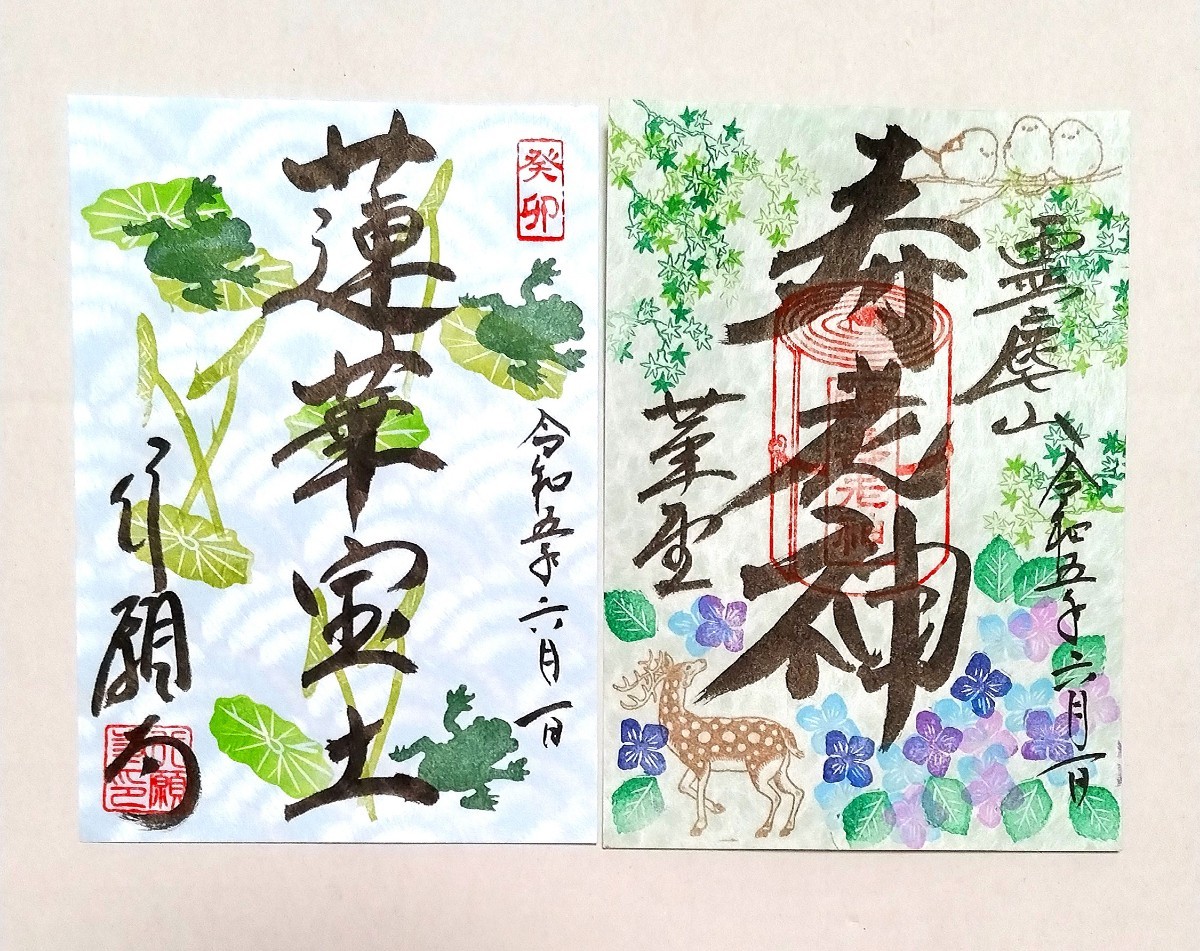 癸卯
令和五年六月一日
蓮華宝土
行願寺
霊麀山
令和五年六月一日
寿老神
革堂